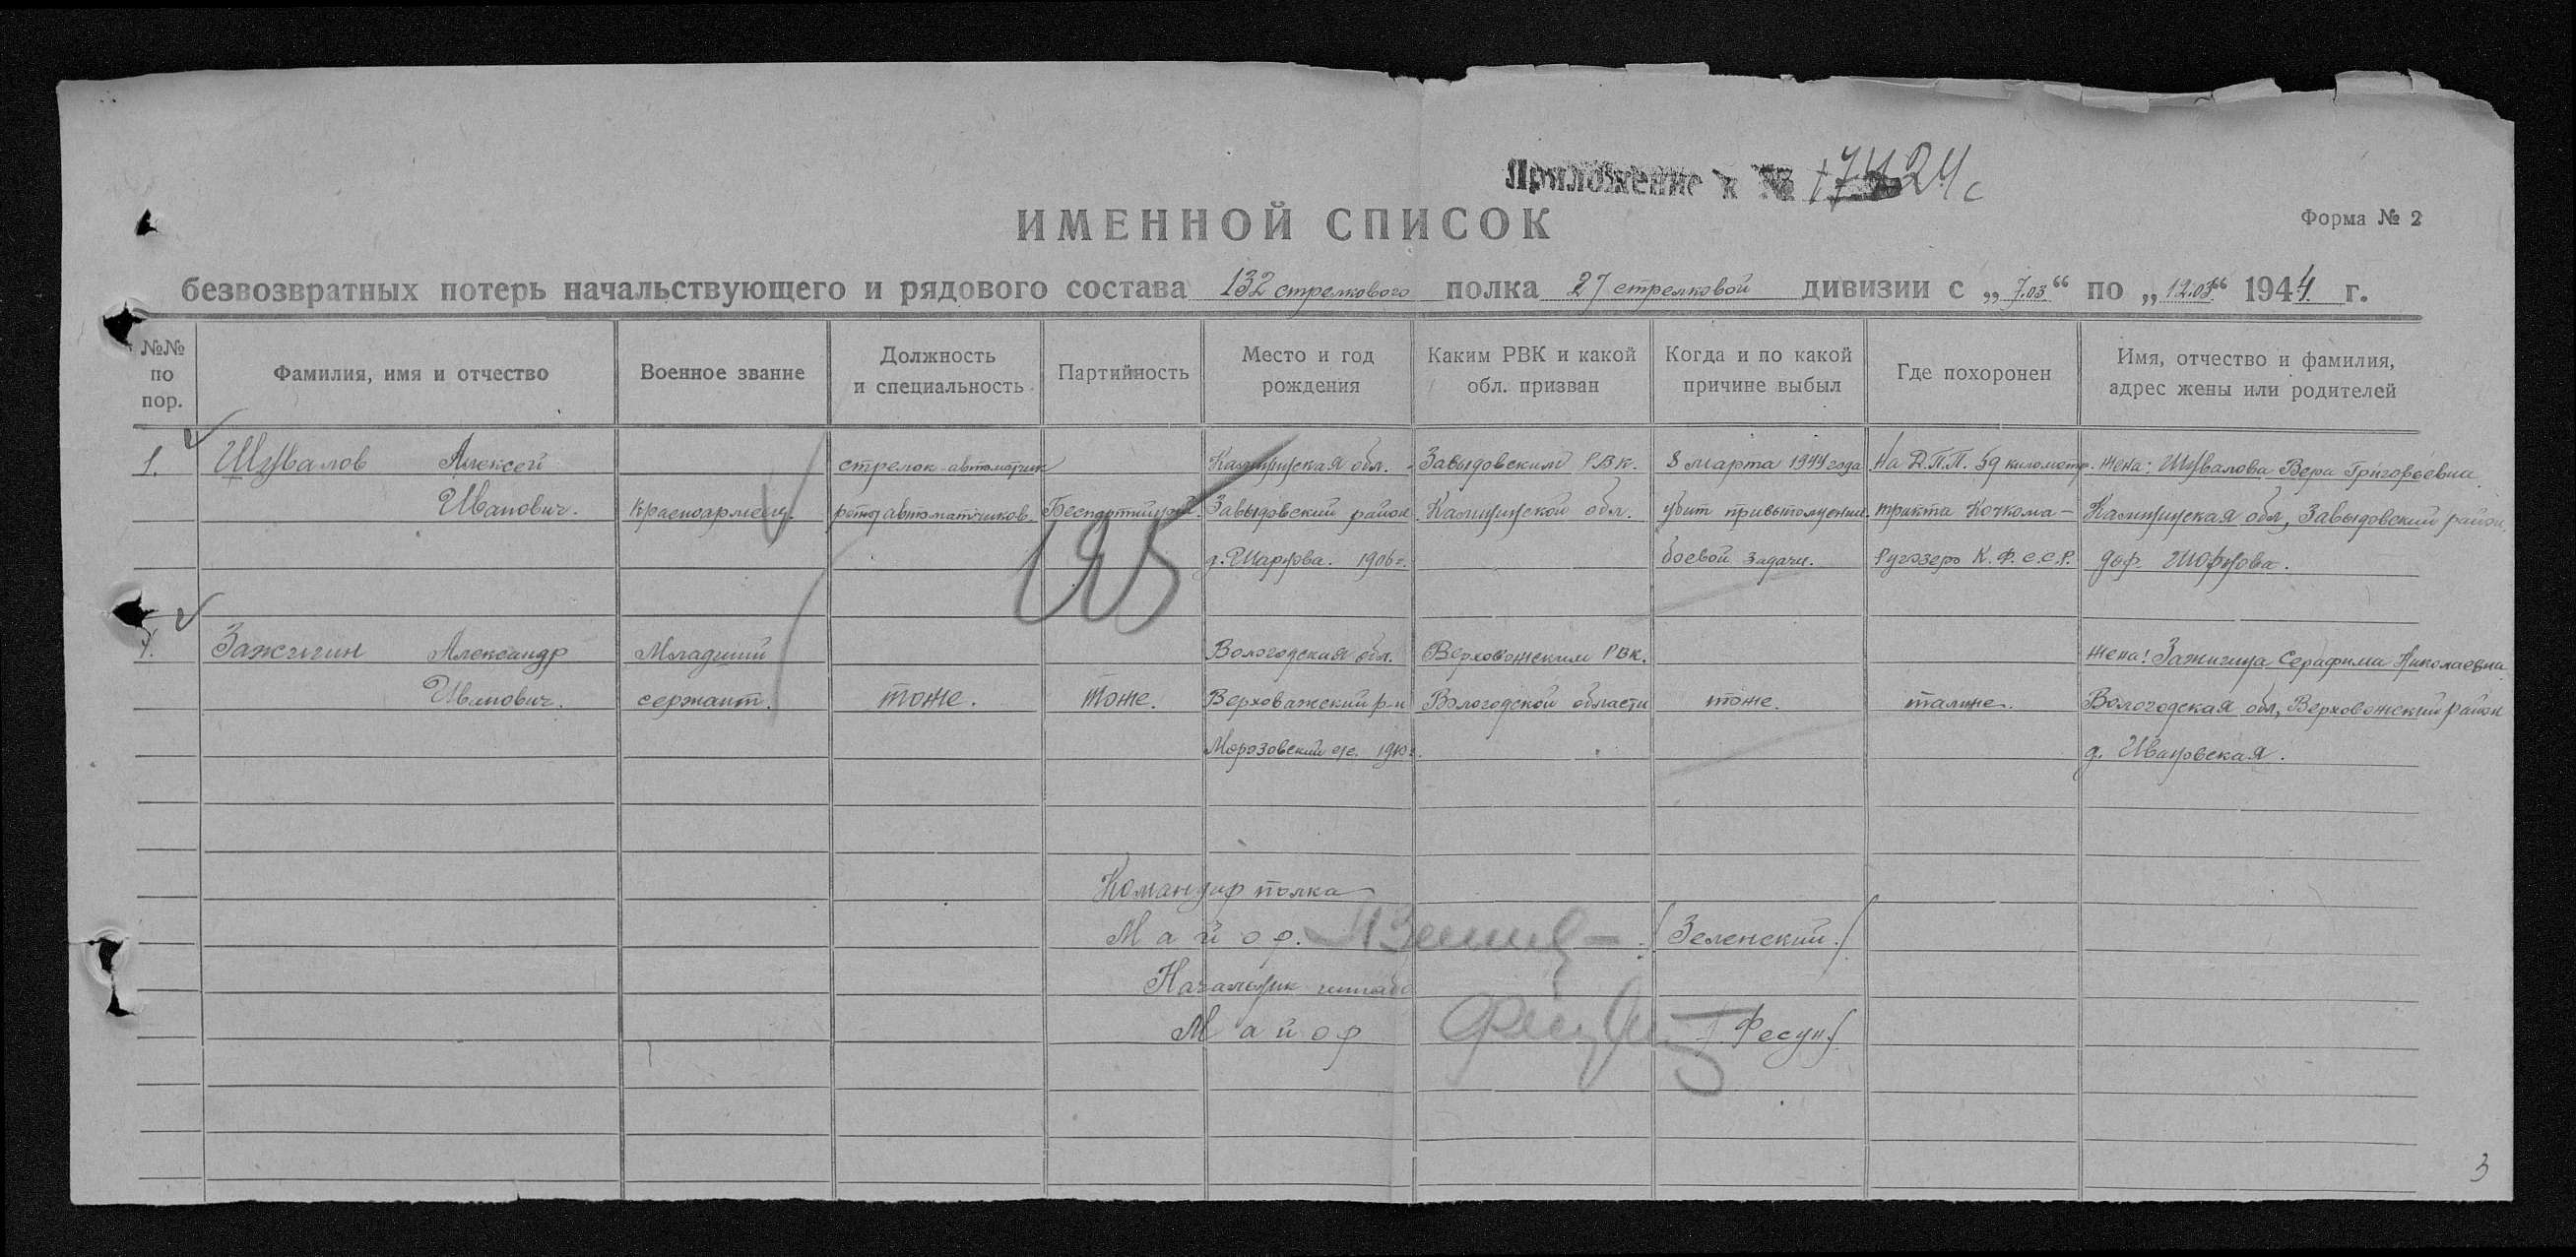 Приложение к № 17424с
ИМЕННОЙ СПИСОК
Форма № 2
безвозвратных потерь начальствующего и рядового состава 132 стрелкового полка 27 стрелковой дивизии с „7.03“ по „12.03“ 1944 г.
№№ по пор.
Фамилия, имя и отчество
Военное звание
Должность и специальность
Партийность
Место и год рождения
Каким РВК и какой обл. призван
Когда и по какой причине выбыл
Где похоронен
Имя, отчество и фамилия, адрес жены или родителей
1. Шувалов Алексей стрелок-автоматчик Калининская обл. Завидовским РВК. 8 марта 1944 года На Д.П.П. 59 километр. жена: Шувалова Вера Григорьевна
Иванович. Красноармеец. роты автоматчиков. Беспартийный. Завыдовский район Калининской обл. убит при выполнении тракта Кочкома–Калининская обл, Завыдовский район,
д. 1906г. боевой задачи. Ругозеро К.Ф.С.С.Р. дер.
125
Зажигин Александр Младший Вологодская обл. Верховожским РВК. жена: Зажигина Серафима Николаевна
Иванович. сержант. тоже. тоже. Верховажский р-н Вологодской области тоже. Вологодская обл, Верховожский район
Морозовский с/с. д. Ивановская.
Командир полка
Майор. /Зеленский./
Начальник штаба
Майор /Фесун/
3